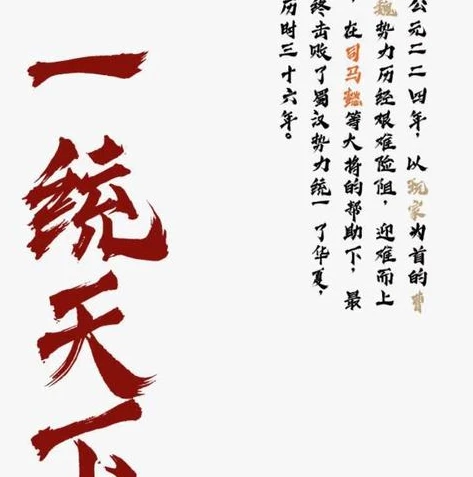 公元二二四年，以玩家为首的曹
魏势力历经艰难险阻，迎难而上
，在司马懿等大将的帮助下，最
终击败了蜀汉势力统一了华夏，
历时三十六年。
一统天下